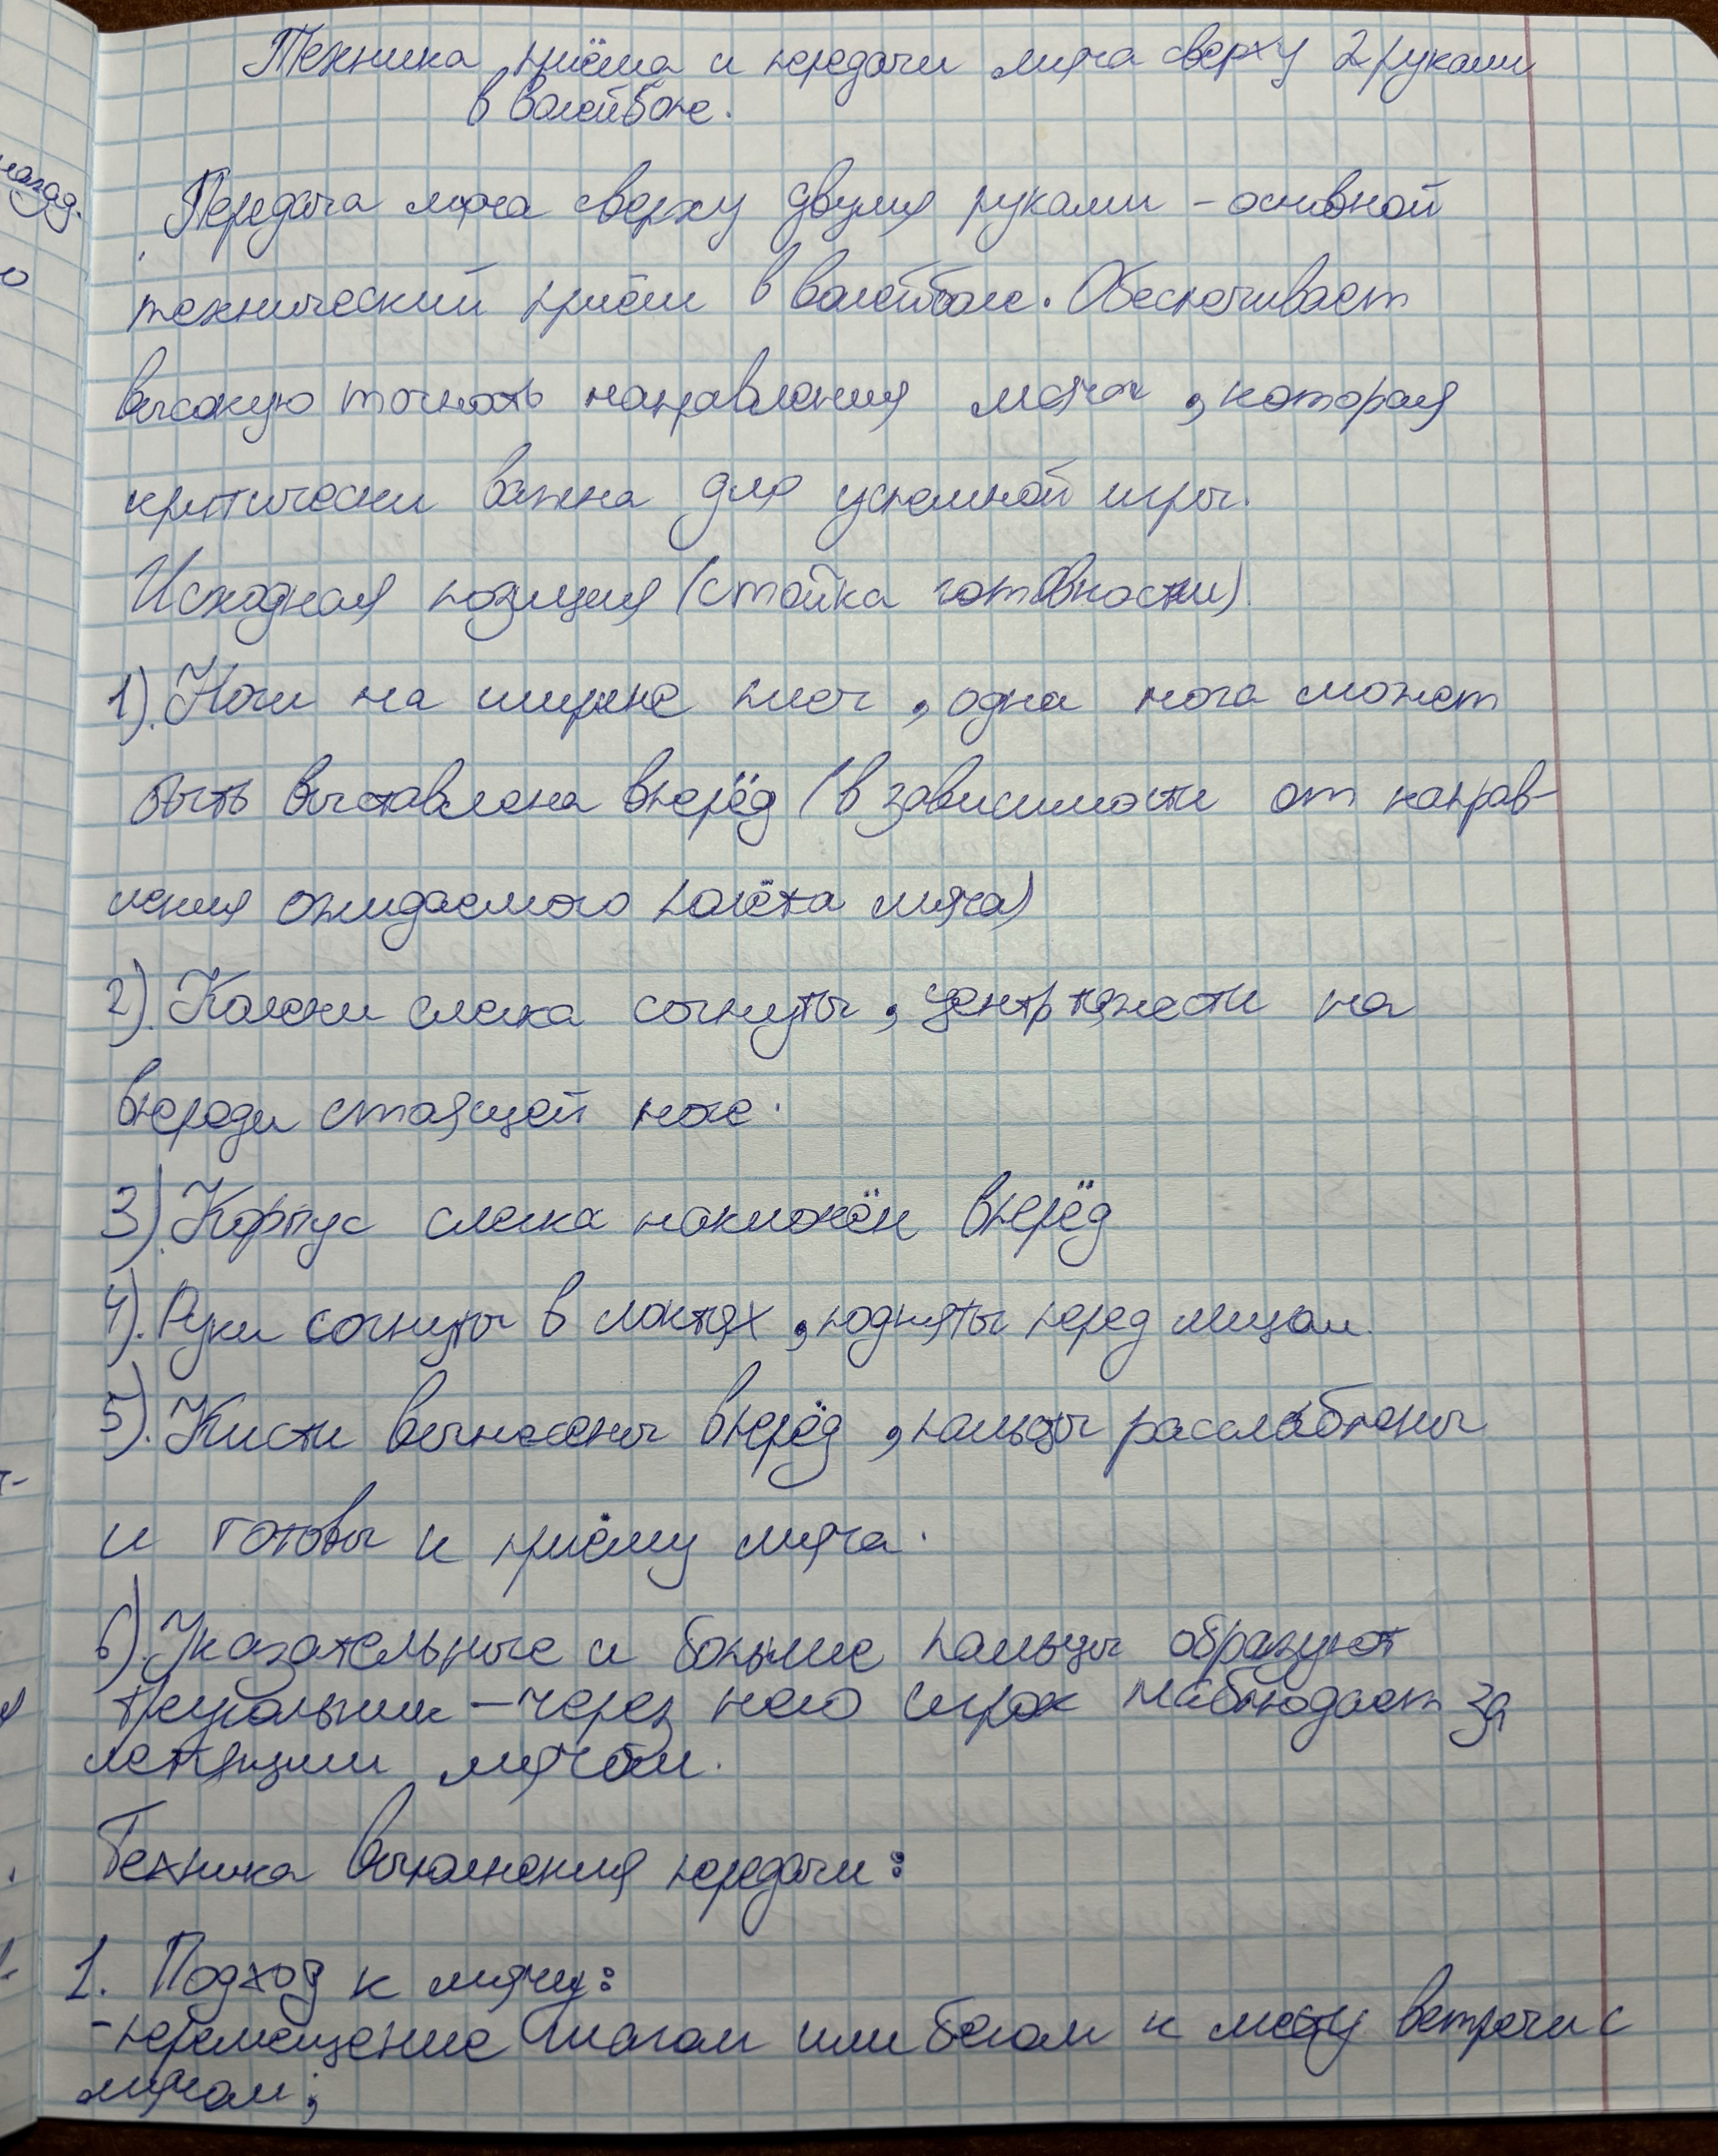 Техника приёма и передачи мяча сверху 2 руками
в волейболе.
Передача мяча сверху двумя руками – основной
технический приём в волейболе. Обеспечивает
высокую точность направления мяча, которая
критически важна для успешной игры.
Исходная позиция (стойка готовности).
1). Ноги на ширине плеч, одна нога может
быть выставлена вперёд (в зависимости от направ-
ления ожидаемого полёта мяча)
2). Колени слегка согнуты, центр тяжести на
впереди стоящей ноге.
3). Корпус слегка наклонён вперёд
4). Руки согнуты в локтях, подняты перед лицом.
5). Кисти вынесены вперёд, пальцы расслаблены
и готовы к приёму мяча.
6). Указательные и большие пальцы образуют
треугольник – через него игрок наблюдает за
летящим мячом.
Техника выполнения передачи:
1. Подход к мячу:
- перемещение шагом или бегом к месту встречи с
мячом;
назад.